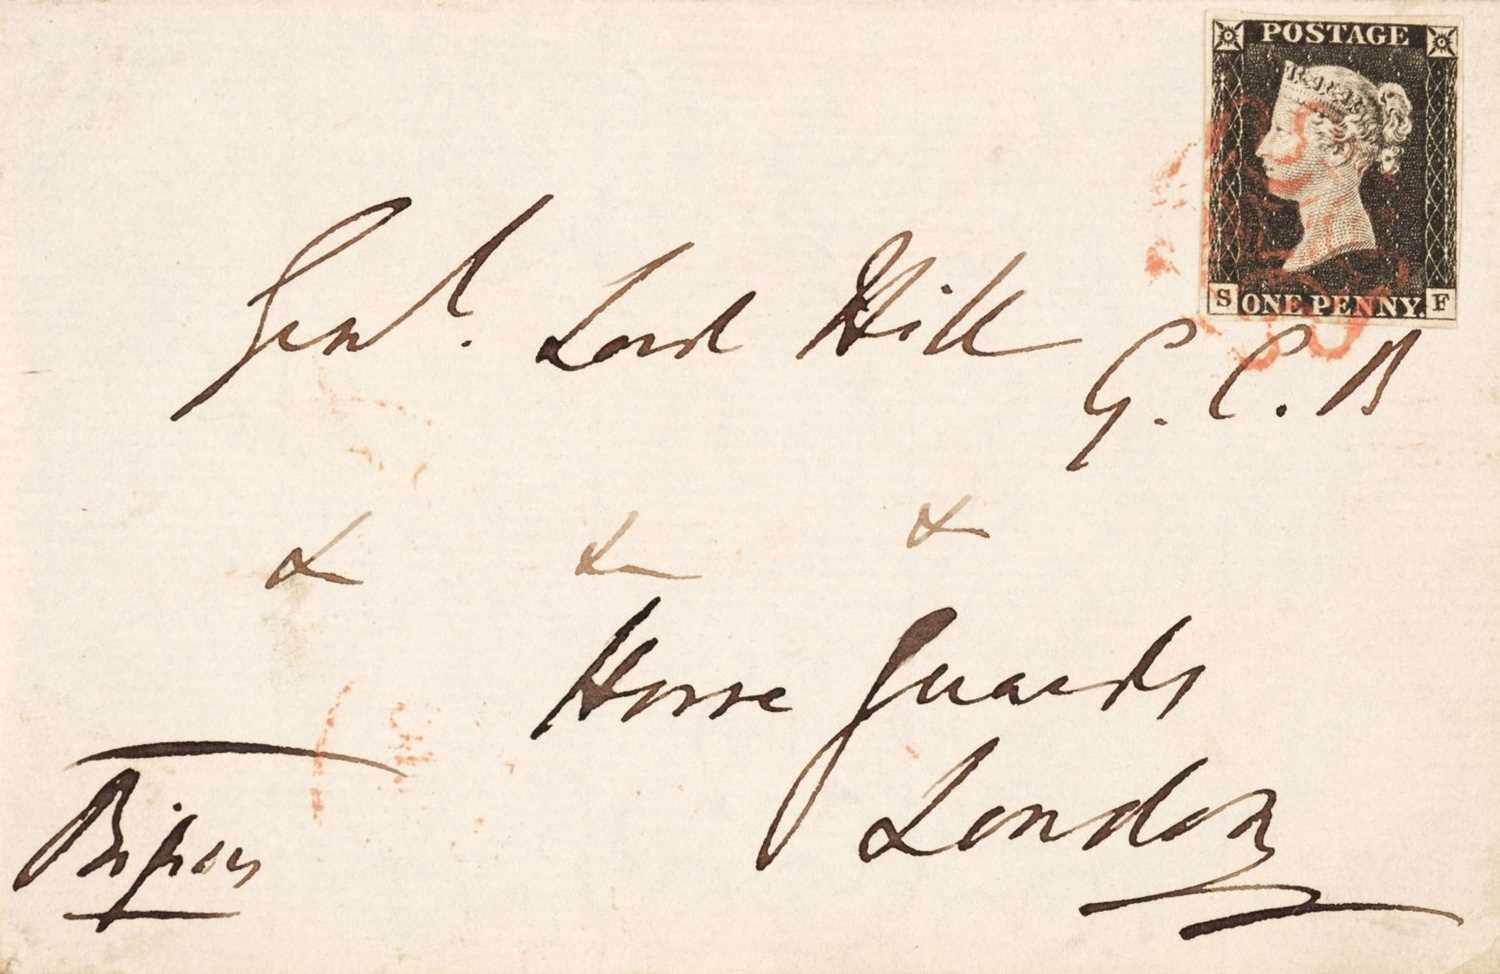 POSTAGE
S ONE PENNY. F
Genl. Lord Hill
G. C. B
& & &
Horse Guards
London
Ripon